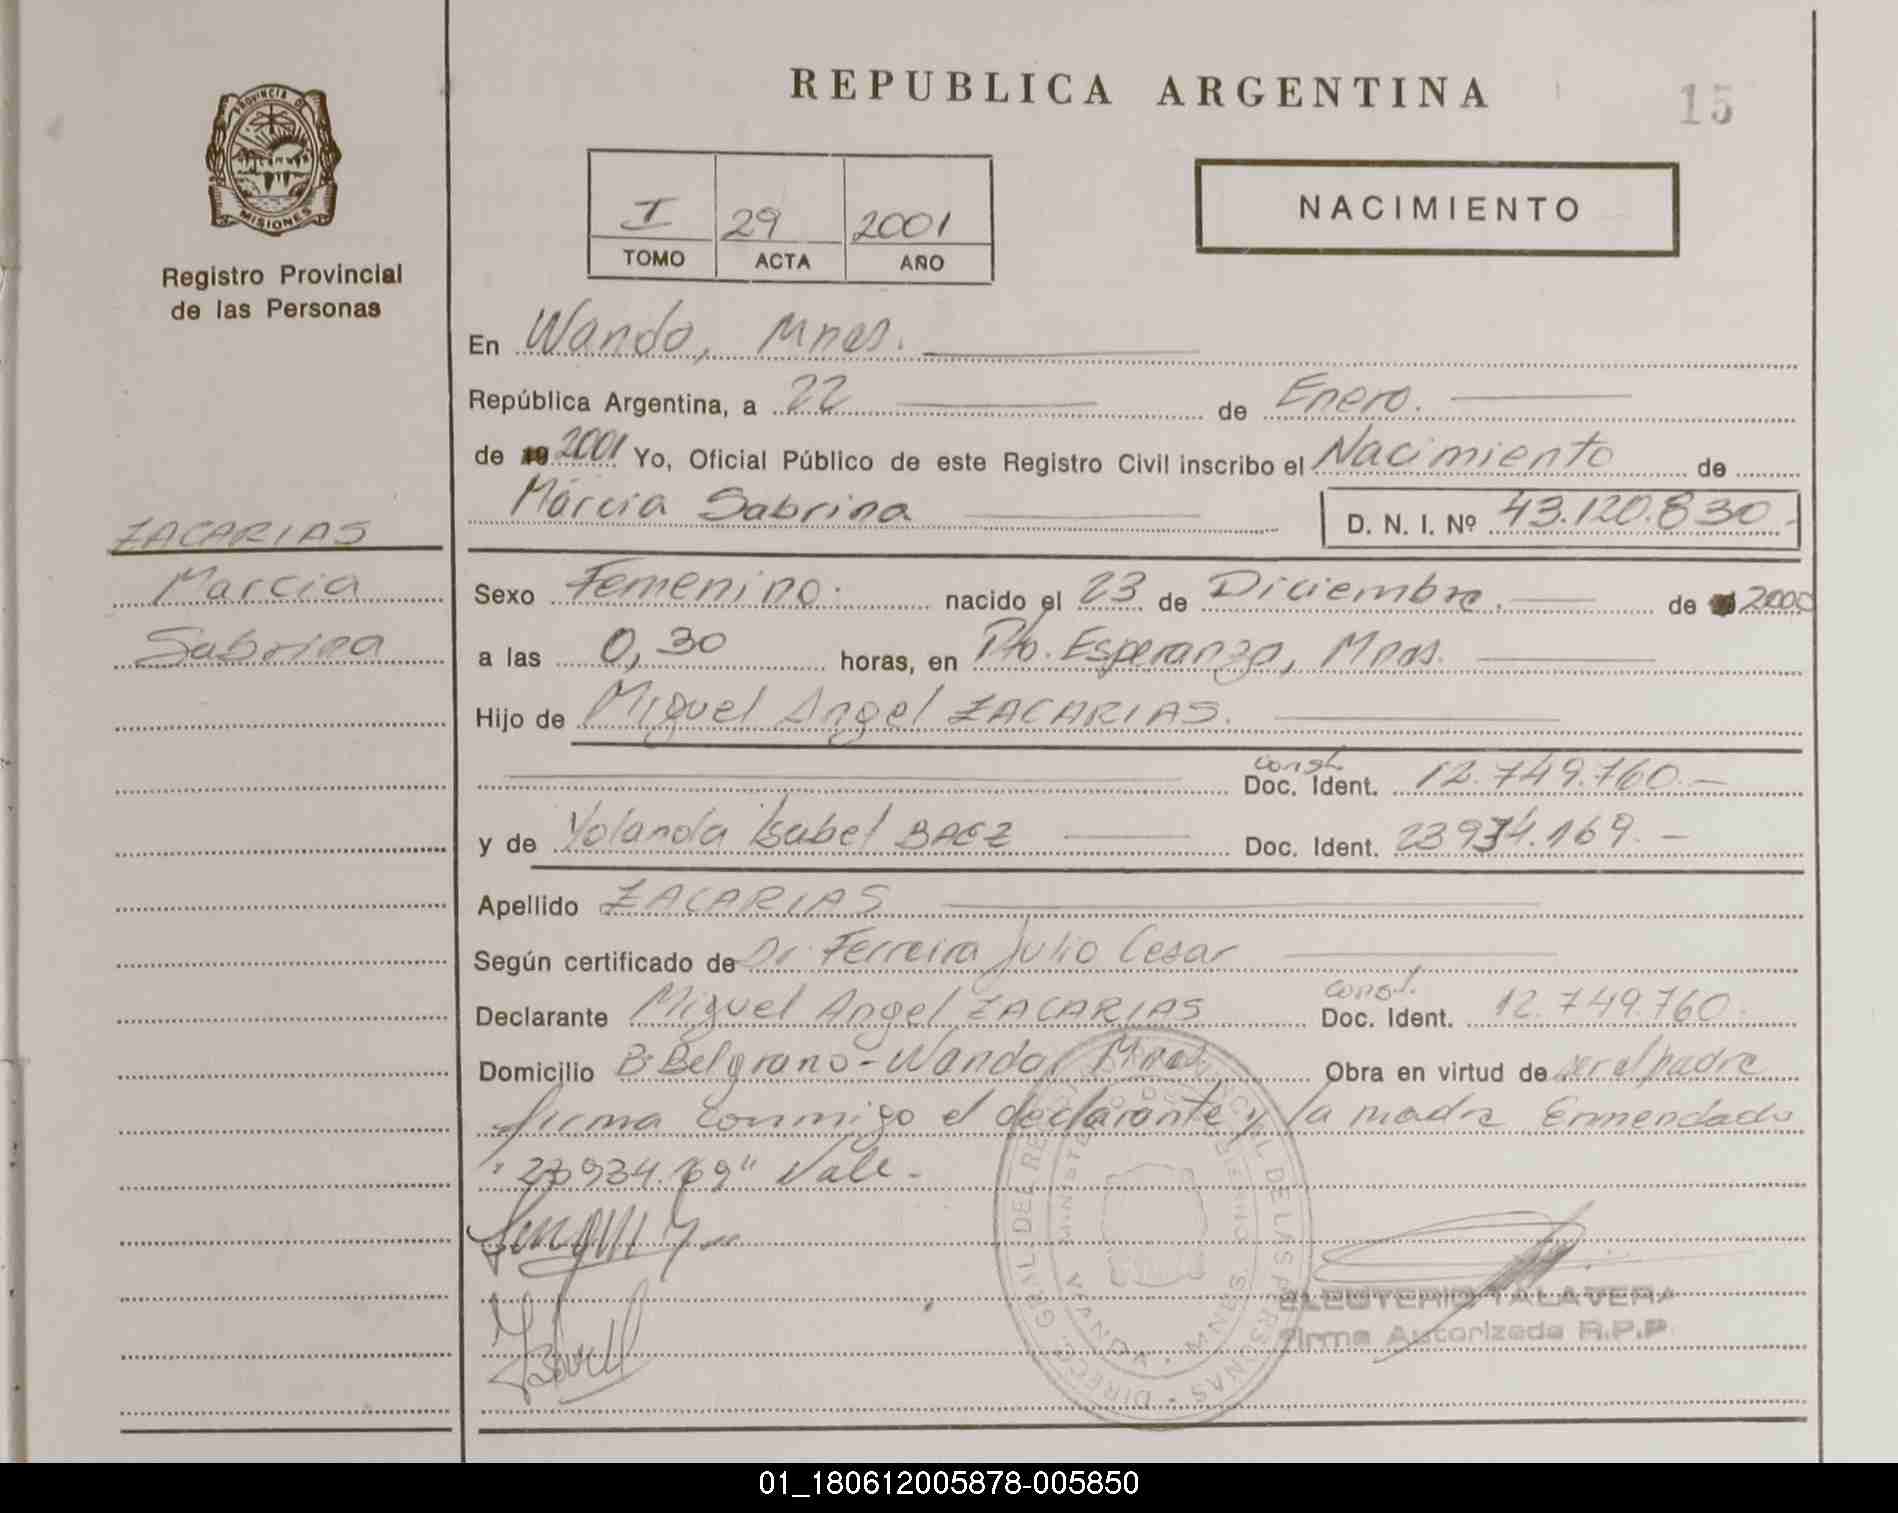 REPUBLICA ARGENTINA
15
PROVINCIA DE
MISIONES
Registro Provincial
de las Personas
I 29 2001
TOMO ACTA AÑO
NACIMIENTO
En Wanda, Mnes.
República Argentina, a 22 de Enero.
de 19 2001 Yo, Oficial Público de este Registro Civil inscribo el Nacimiento de
Marcia Sabrina D. N. I. Nº 43.120.830
ZACARIAS
Marcia
Sabrina
Sexo Femenino. nacido el 23 de Diciembre. de 2000
a las 0,30 horas, en Pto. Esperanza, Mnes.
Hijo de Miguel Angel ZACARIAS.
const.
Doc. Ident. 12.749.760.-
y de Yolanda Isabel BAEZ Doc. Ident. 23934.169.-
Apellido ZACARIAS
Según certificado de Dr. Ferreira Julio Cesar
const.
Declarante Miguel Angel ZACARIAS Doc. Ident. 12.749.760.
Domicilio Bº Belgrano - Wanda, Mnes Obra en virtud de ser el padre
firma conmigo el declarante y la madre Enmendado
"23934.169" Vale.-
ELEUTERIO TALAVERA
Firma Autorizada R.P.P.
DIRECC. GRAL DEL REGISTRO PROVINCIAL DE LAS PERSONAS
WANDA - MNES.
01_180612005878-005850